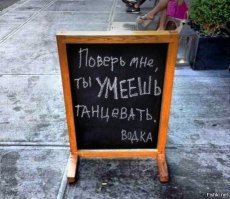 Поверь мне,
ты УМЕЕШЬ
танцевать.
ВОДКА
Fishki.net